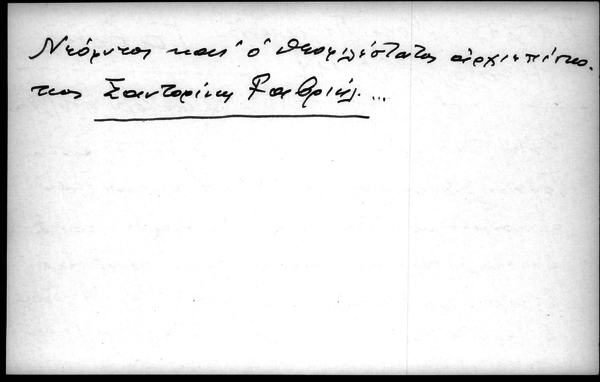 Νεόφυτος καὶ ὁ θεοφιλέστατος ἀρχιεπίσκο.
πος Σαντορίνης Γαβριήλ...